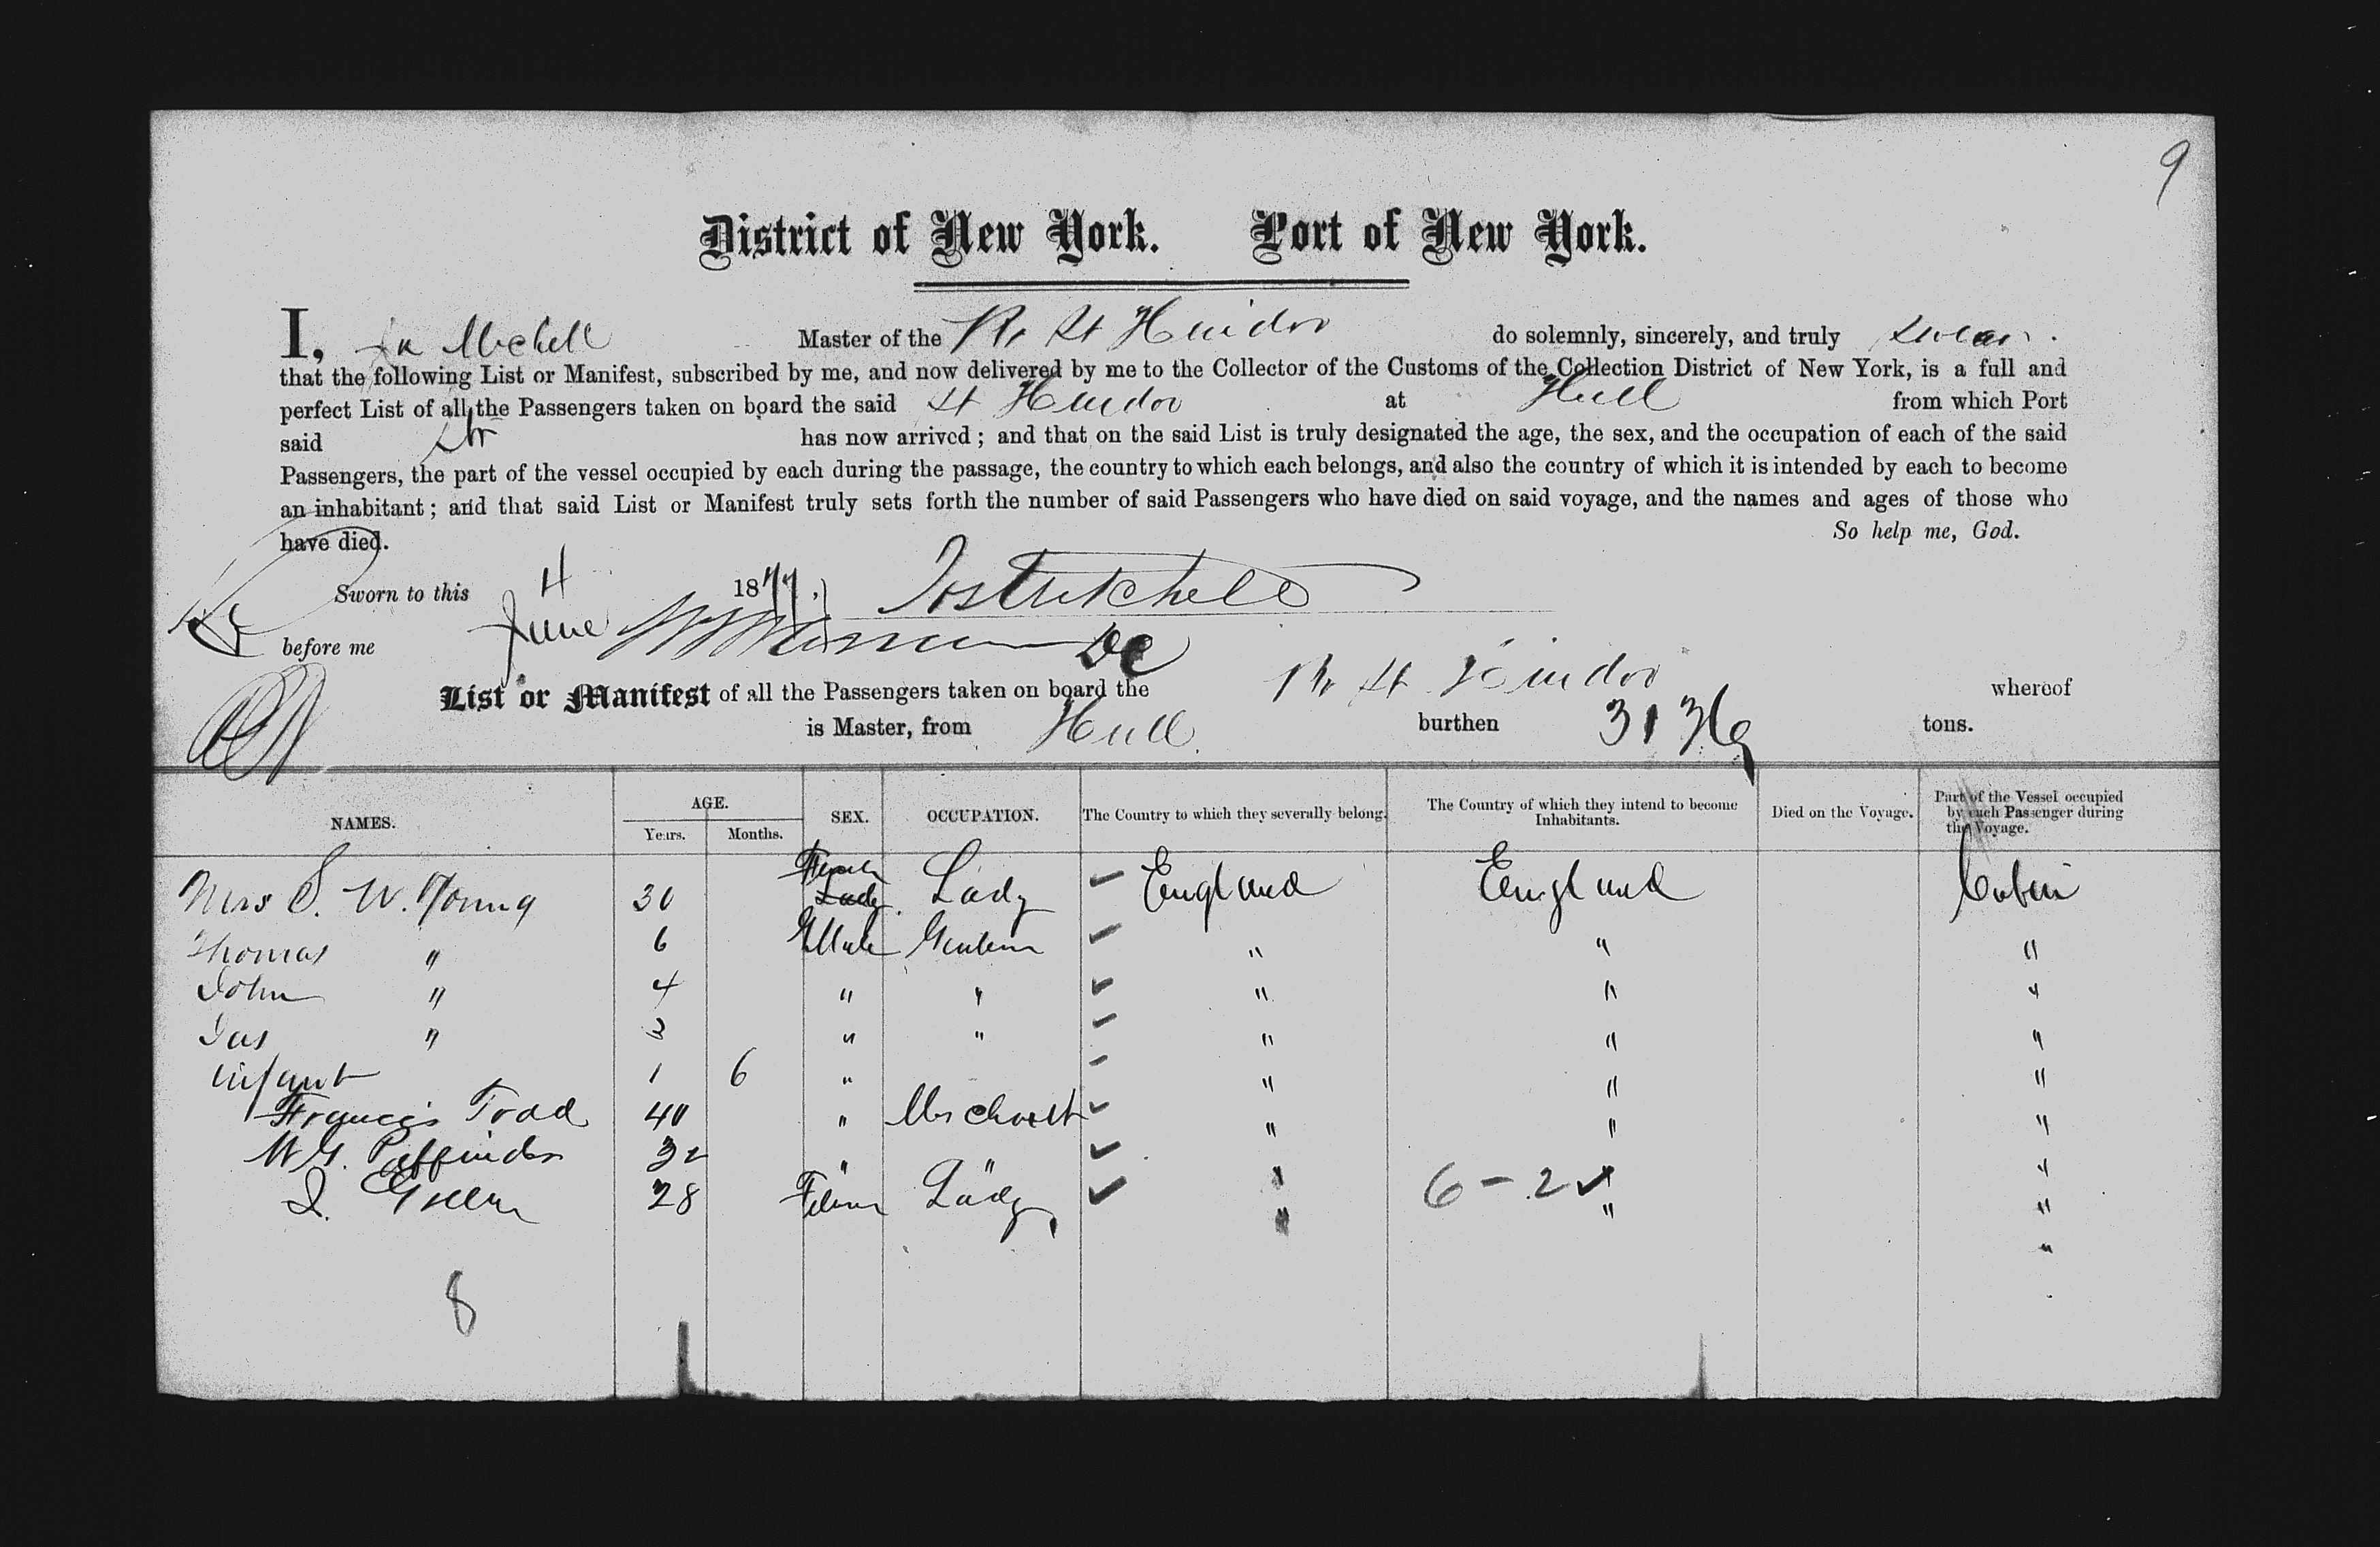 9
District of New York. Port of New York.
I, Mitchell Master of the Str Hindoo do solemnly, sincerely, and truly swear
that the following List or Manifest, subscribed by me, and now delivered by me to the Collector of the Customs of the Collection District of New York, is a full and
perfect List of all the Passengers taken on board the said St Hindoo at Hull from which Port
said Str has now arrived; and that on the said List is truly designated the age, the sex, and the occupation of each of the said
Passengers, the part of the vessel occupied by each during the passage, the country to which each belongs, and also the country of which it is intended by each to become
an inhabitant; and that said List or Manifest truly sets forth the number of said Passengers who have died on said voyage, and the names and ages of those who
have died. So help me, God.
Sworn to this 4 1877,
before me June DC
List or Manifest of all the Passengers taken on board the Hindoo whereof
is Master, from Hull burthen tons.
NAMES. AGE. Years. Months. SEX. OCCUPATION. The Country to which they severally belong. The Country of which they intend to become Inhabitants. Died on the Voyage. Part of the Vessel occupied by each Passenger during the Voyage.
Mrs S. W. Young 30 Female Lady England England Cabin
Thomas " 6 Male " " "
John " 4 " " " " "
Jas " 3 " " " " "
infant 1 6 " " " "
Francis Todd 40 " " " "
W. G. 32 " " " " "
Green 28 Lady " 6 - 2 " "
8